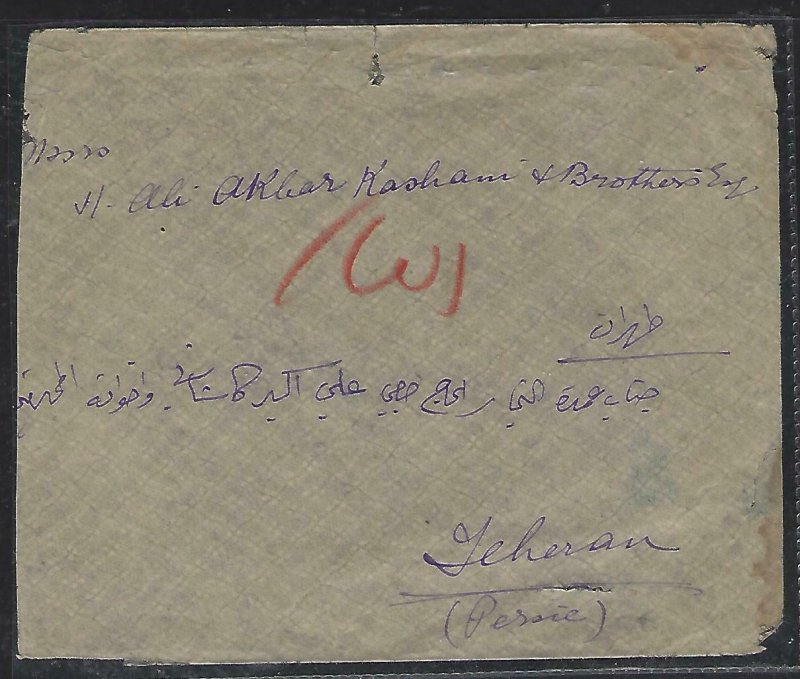 Messrs
H. Ali Akbar Kashani & Brothers Esq
طهران
جناب عمدة التجار الحاج علي اكبر كاشاني واخوانه المحترمين
Teheran
(Persie)